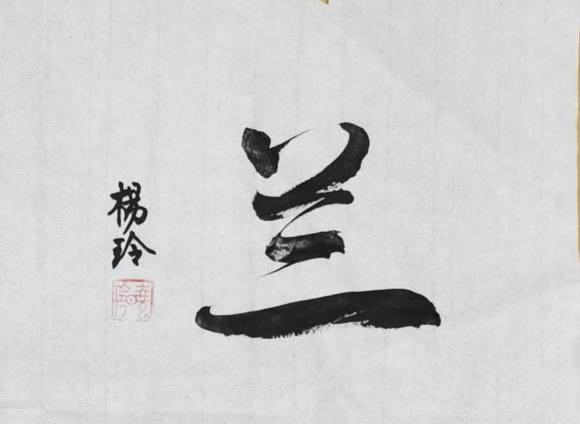 兰
楊玲